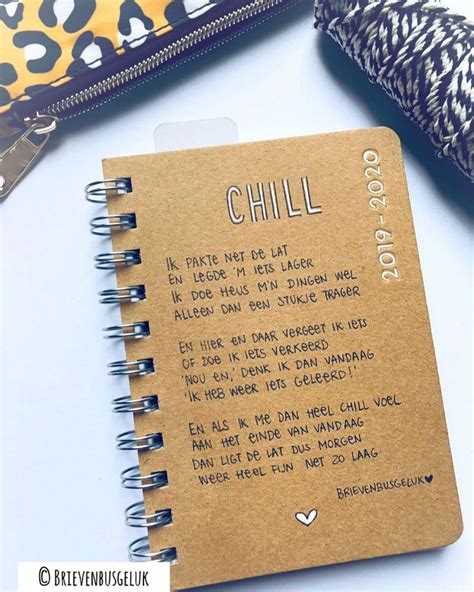 CHILL
2019-2020
IK PAKTE NET DE LAT
EN LEGDE 'M IETS LAGER
IK DOE HEUS M'N DINGEN WEL
ALLEEN DAN EEN STUKJE TRAGER
EN HIER EN DAAR VERGEET IK IETS
OF DOE IK IETS VERKEERD
'NOU EN,' DENK IK DAN VANDAAG
'IK HEB WEER IETS GELEERD!'
EN ALS IK ME DAN HEEL CHILL VOEL
AAN HET EINDE VAN VANDAAG
DAN LIGT DE LAT DUS MORGEN
WEER HEEL FIJN NET ZO LAAG
BRIEVENBUSGELUK♥
© BRIEVENBUSGELUK